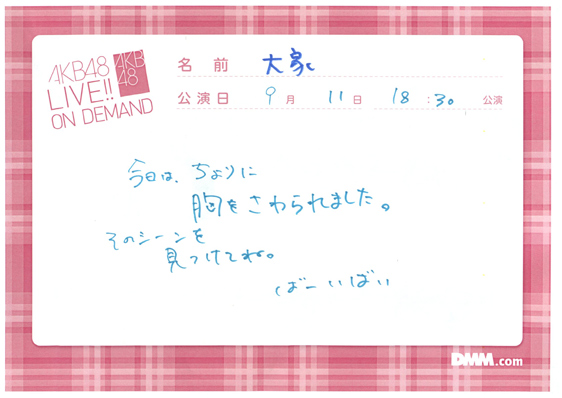 AKB48
LIVE!!
ON DEMAND
AKB
48
名前 大家
公演日 9月 11日 18:30 公演
今日は、ちよりに
胸をさわられました。
そのシーンを
見つけてね。
ばーいばい
DMM.com